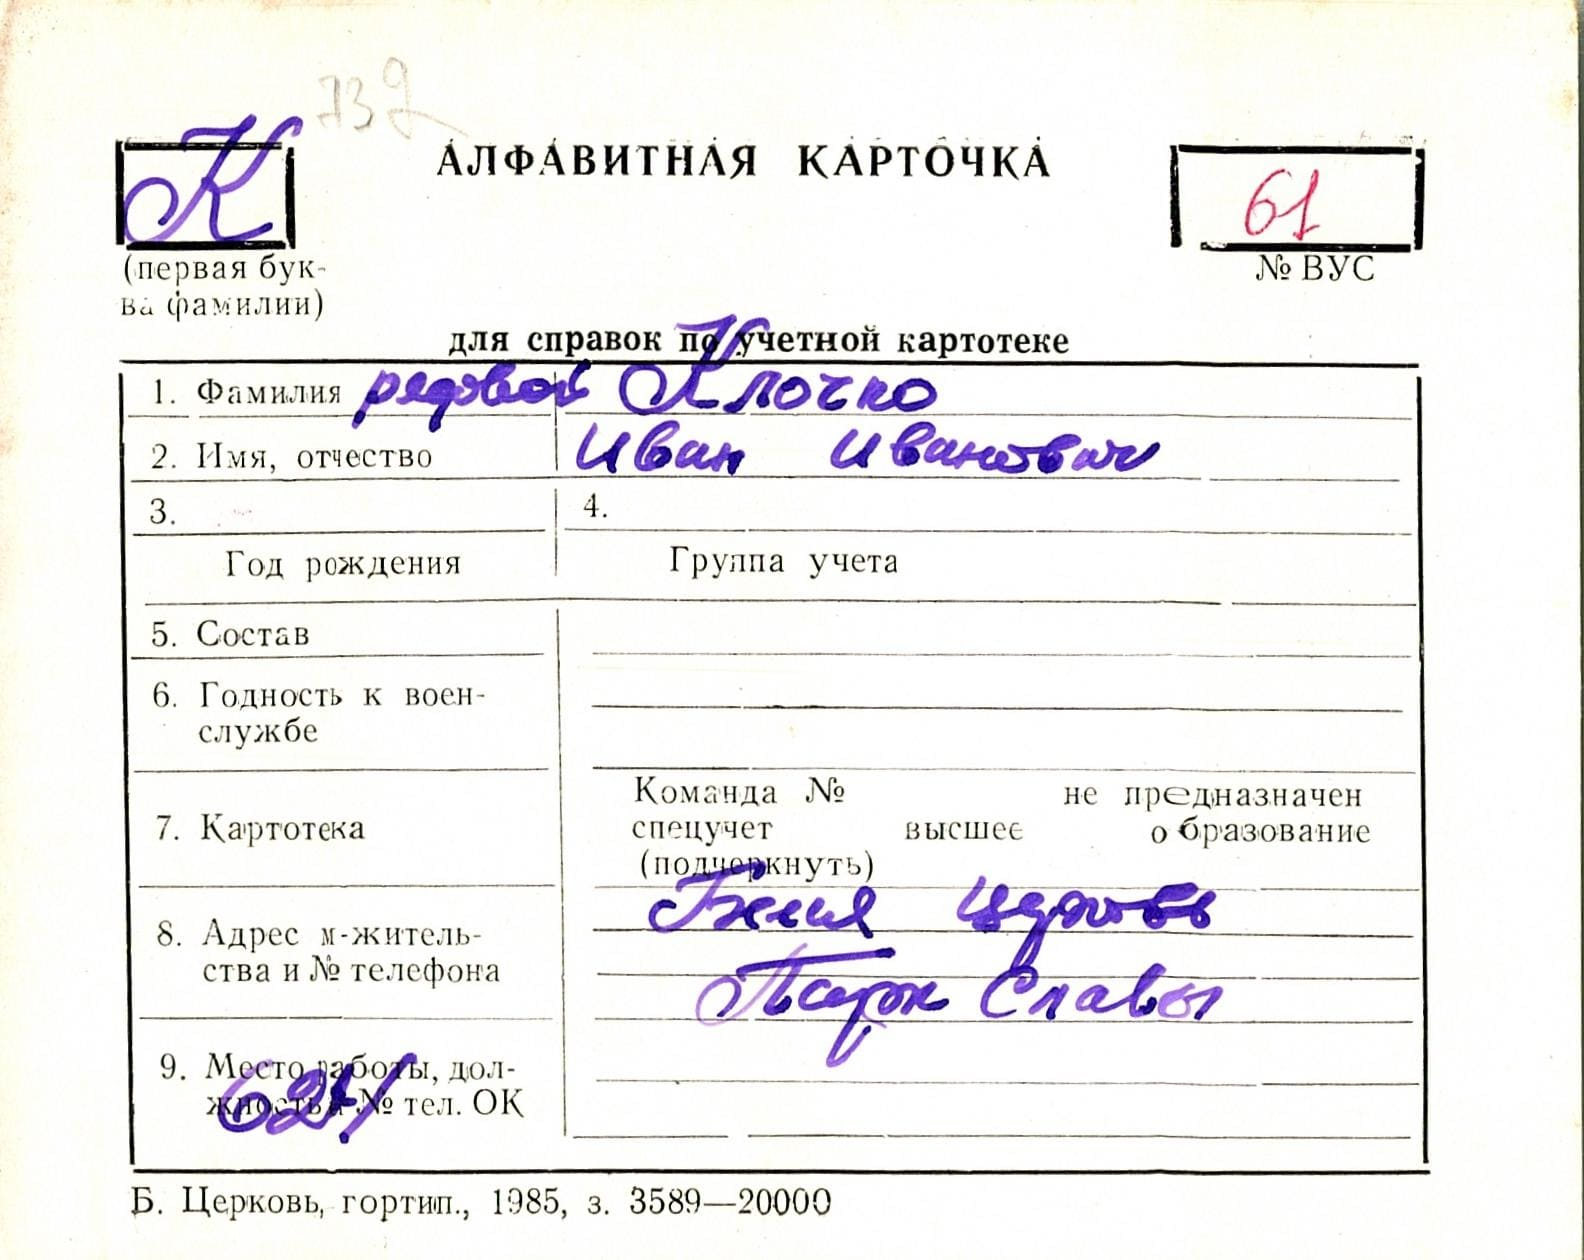 732
К АЛФАВИТНАЯ КАРТОЧКА 61
(первая бук-
ва фамилии)
№ ВУС
для справок по учетной картотеке
1. Фамилия рядовой Клочко
2. Имя, отчество Иван Иванович
3. 4.
Год рождения Группа учета
5. Состав
6. Годность к воен-
службе
7. Картотека
Команда № не предназначен
спецучет высшее образование
(подчеркнуть)
8. Адрес м-житель-
ства и № телефона
Белая Церковь
Парк Славы
9. Место работы, дол-
жность и № тел. ОК
Б. Церковь, гортип., 1985, з. 3589—20000